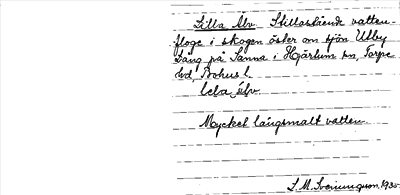 Lilla Älv Stillastående vatten-
floge i skogen öster om sjön Utby
Lång på Sanna i Hjärtum sn, Torpe
hd, Bohusl.
lela älv
Mycket långsmalt vatten.
S. M. Svenungson 1935